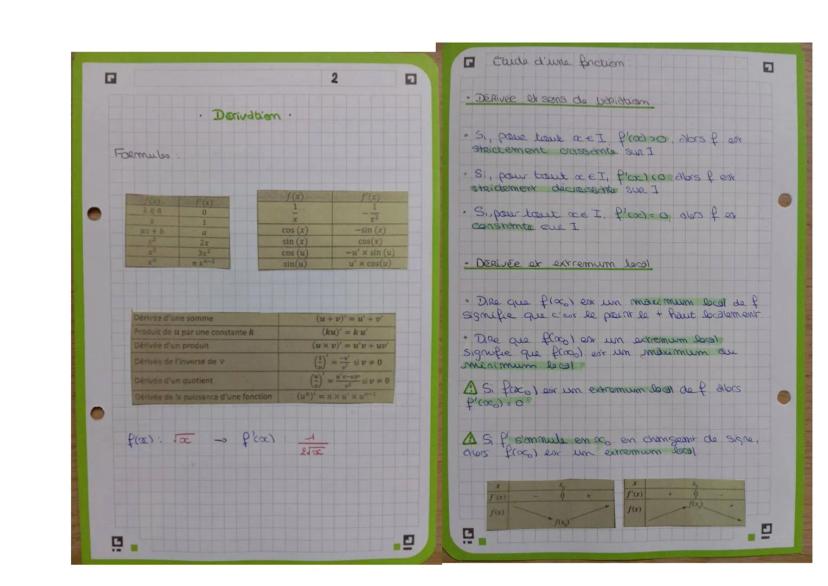 2
· Dérivation ·
Formules :
f(x) f'(x)
k ∈ R 0
x 1
ax + b a
x² 2x
x³ 3x²
xⁿ n xⁿ⁻¹
f(x) f'(x)
1/x -1/x²
cos (x) -sin (x)
sin (x) cos(x)
cos (u) -u' × sin (u)
sin(u) u' × cos(u)
Dérivée d'une somme (u + v)' = u' + v'
Produit de u par une constante k (ku)' = k u'
Dérivée d'un produit (u × v)' = u'v + uv'
Dérivée de l'inverse de v (1/v)' = -v'/v² si v ≠ 0
Dérivée d'un quotient (u/v)' = u'v-uv'/v² si v ≠ 0
Dérivée de la puissance d'une fonction (uⁿ)' = n × u' × uⁿ⁻¹
f(x) : √x → f'(x) : 1/2√x
Étude d'une fonction
· Dérivée et sens de variation
· Si, pour tout x ∈ I f'(x) > 0, alors f est
strictement croissante sur I
· Si, pour tout x ∈ I, f'(x) < 0 alors f est
strictement décroissante sur I
· Si, pour tout x ∈ I, f'(x) = 0, alors f est
constante sur I
· Dérivée et extremum local
· Dire que f(x₀) est un maximum local de f
signifie que c'est le point le + haut localement
· Dire que f(x₀) est un extremum local
signifie que f(x₀) est un maximum ou
minimum local
⚠ Si f(x₀) est un extremum local de f alors
f'(x₀) = 0
⚠ Si f' s'annule en x₀ en changeant de signe,
alors f(x₀) est un extremum local
x x₀
f'(x) - 0 +
f(x) f(x₀)
x x₀
f'(x) + 0 -
f(x) f(x₀)